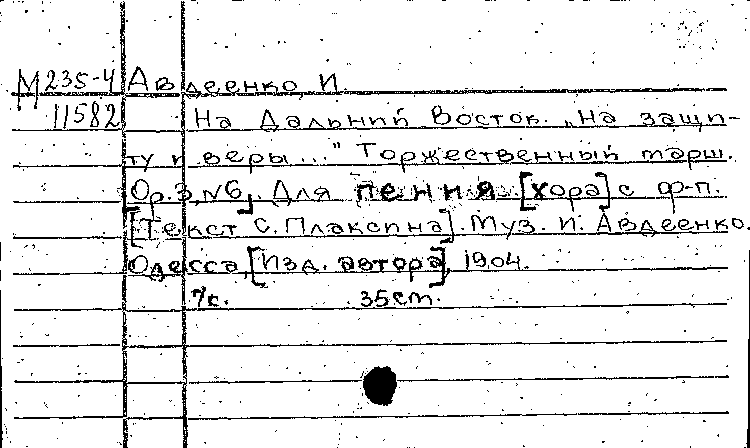 М 235-4 Авдеенко, И.
11582 На Дальний Восток. „На защи-
ту и веры..." Торжественный марш.
Op. 3, №6, Для пения [хора] с ф-п.
[Текст С. Плаксина]. Муз. И. Авдеенко.
Одесса, [Изд. автора], 1904.
7с. 35см.